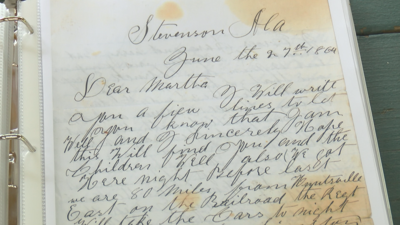 Stevenson Ala
June the 27th 1864
Dear Martha I Will write
you a fiew lines to let
you know that I am
Well and I Sincerely Hope
this Will find you and the
Children Well also We got
Here night Before last
we are 80 Miles from
East on the Railroad the Regt
Will take the Cars to night